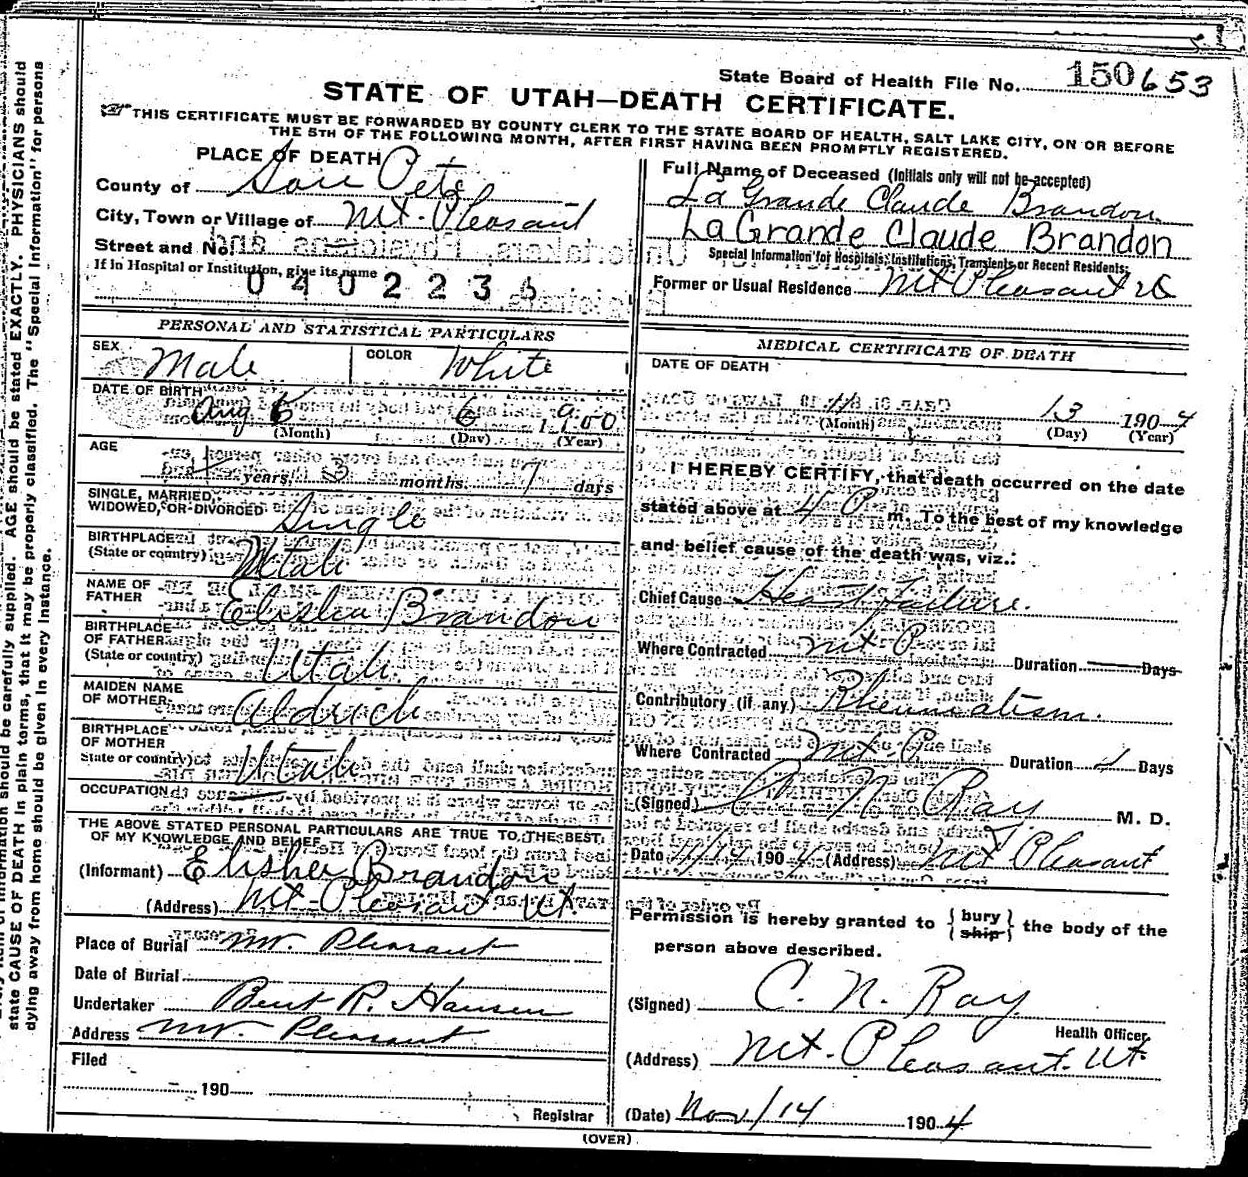 State Board of Health File No. 150653
STATE OF UTAH—DEATH CERTIFICATE.
THIS CERTIFICATE MUST BE FORWARDED BY COUNTY CLERK TO THE STATE BOARD OF HEALTH, SALT LAKE CITY, ON OR BEFORE
THE 5TH OF THE FOLLOWING MONTH, AFTER FIRST HAVING BEEN PROMPTLY REGISTERED.
PLACE OF DEATH
County of San Pete
City, Town or Village of Mt. Pleasant
Street and No.
If in Hospital or Institution, give its name
0402235
Full Name of Deceased (Initials only will not be accepted)
La Grande Claude Brandon
LaGrande Claude Brandon
Special Information for Hospitals, Institutions, Transients or Recent Residents,
Former or Usual Residence Mt Pleasant
PERSONAL AND STATISTICAL PARTICULARS
SEX Male COLOR White
DATE OF BIRTH Aug 6 1900
(Month) (Day) (Year)
AGE
years, 3 months, 7 days
SINGLE, MARRIED,
WIDOWED, OR DIVORCED Single
BIRTHPLACE
(State or country) Utah
NAME OF
FATHER Elisha Brandon
BIRTHPLACE
OF FATHER
(State or country) Utah
MAIDEN NAME
OF MOTHER Aldrich
BIRTHPLACE
OF MOTHER
State or country) Utah
OCCUPATION
THE ABOVE STATED PERSONAL PARTICULARS ARE TRUE TO THE BEST
OF MY KNOWLEDGE AND BELIEF
(Informant) Elisher Brandon
(Address) Mt-Pleasant Ut.
Place of Burial Mt. Pleasant
Date of Burial
Undertaker Bent R. Hansen
Address Mt. Pleasant
Filed
190
Registrar
MEDICAL CERTIFICATE OF DEATH
DATE OF DEATH
11 13 1904
(Month) (Day) (Year)
I HEREBY CERTIFY, that death occurred on the date
stated above at 4 P m. To the best of my knowledge
and belief cause of the death was, viz.:
Chief Cause Heart Failure.
Where Contracted Mt P Duration Days
Contributory (if any) Rheumatism.
Where Contracted Mt. P Duration Days
(Signed) C. N. Ray M. D.
Date 11/14 1904 (Address) Mt Pleasant
Permission is hereby granted to {bury
ship} the body of the
person above described.
(Signed) C. N. Ray
Health Officer
(Address) Mt. Pleasant. Ut
(Date) Nov/14 1904
(OVER)
state CAUSE OF DEATH in plain terms, that it may be properly classified. The "Special Information" for persons
dying away from home should be given in every instance.